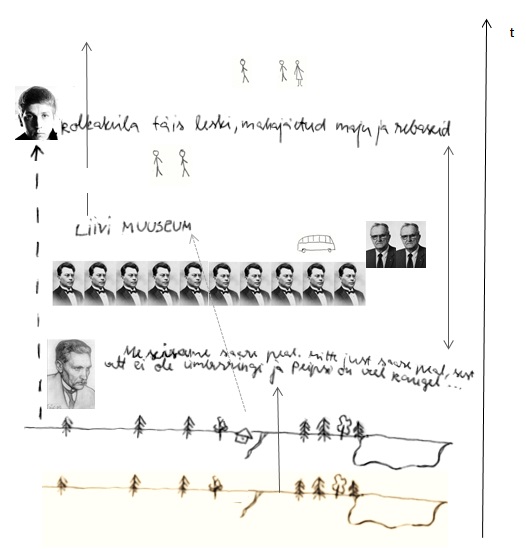 t
kolkaküla täis leski, mahajäetud maju ja rebaseid
LIIVI MUUSEUM
Me seisame saare peal. mitte just saare peal, sest
vett ei ole ümberringi ja Peipsi on veel kaugel ...